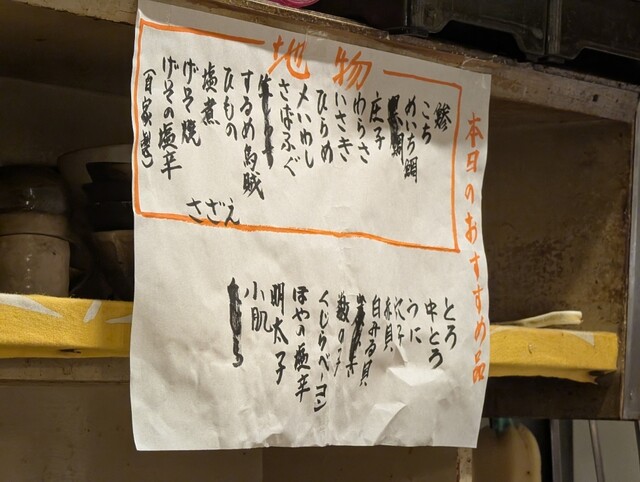 本日のおすすめ品
地物
鯵
こち
めいち鯛
庄子
わらさ
いさき
ひらめ
〆いわし
さばふぐ
するめ烏賊
ひもの
塩煮
げそ焼
げその塩辛
(自家製)
さざえ
とろ
中とろ
うに
穴子
赤貝
白みる貝
数の子
くじらベーコン
ほやの塩辛
明太子
小肌